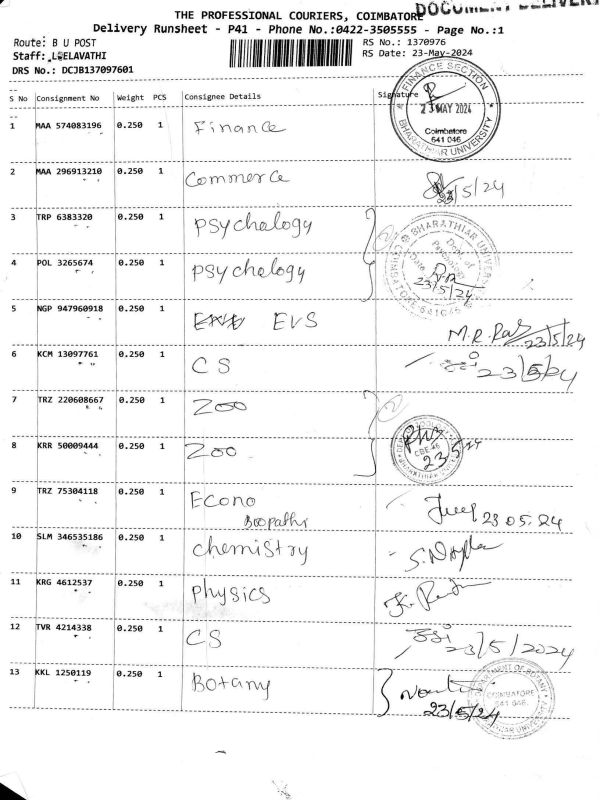 DOCUMENT DELIVERY
THE PROFESSIONAL COURIERS, COIMBATORE
Delivery Runsheet - P41 - Phone No.:0422-3505555 - Page No.:1
Route: B U POST RS No.: 1370976
Staff: LEELAVATHI RS Date: 23-May-2024
DRS No.: DCJB137097601
S No Consignment No Weight PCS Consignee Details Signature
FINANCE SECTION
23 MAY 2024
Coimbatore
641 046
BHARATHIAR UNIVERSITY
1 MAA 574083196 0.250 1 Finance
2 MAA 296913210 0.250 1 Commerce 23/5/24
3 TRP 6383320 0.250 1 psychology 2
BHARATHIAR UNIVERSITY
Dept. of
Psychology
Date
23/5/24
COIMBATORE 641046
4 POL 3265674 0.250 1 psychology
5 NGP 947960918 0.250 1 EVS M.R. 23/5/24
6 KCM 13097761 0.250 1 CS 23/5/24
7 TRZ 220608667 0.250 1 Zoo 2
8 KRR 50009444 0.250 1 Zoo
CBE-46
23/5/24
9 TRZ 75304118 0.250 1 Econo 23.05.24
Boopathi
10 SLM 346535186 0.250 1 chemistry
11 KRG 4612537 0.250 1 physics
12 TVR 4214338 0.250 1 CS 23/5/2024
13 KKL 1250119 0.250 1 Botany
23/5/24
DEPARTMENT OF BOTANY
COIMBATORE
641 046
BHARATHIAR UNIVERSITY